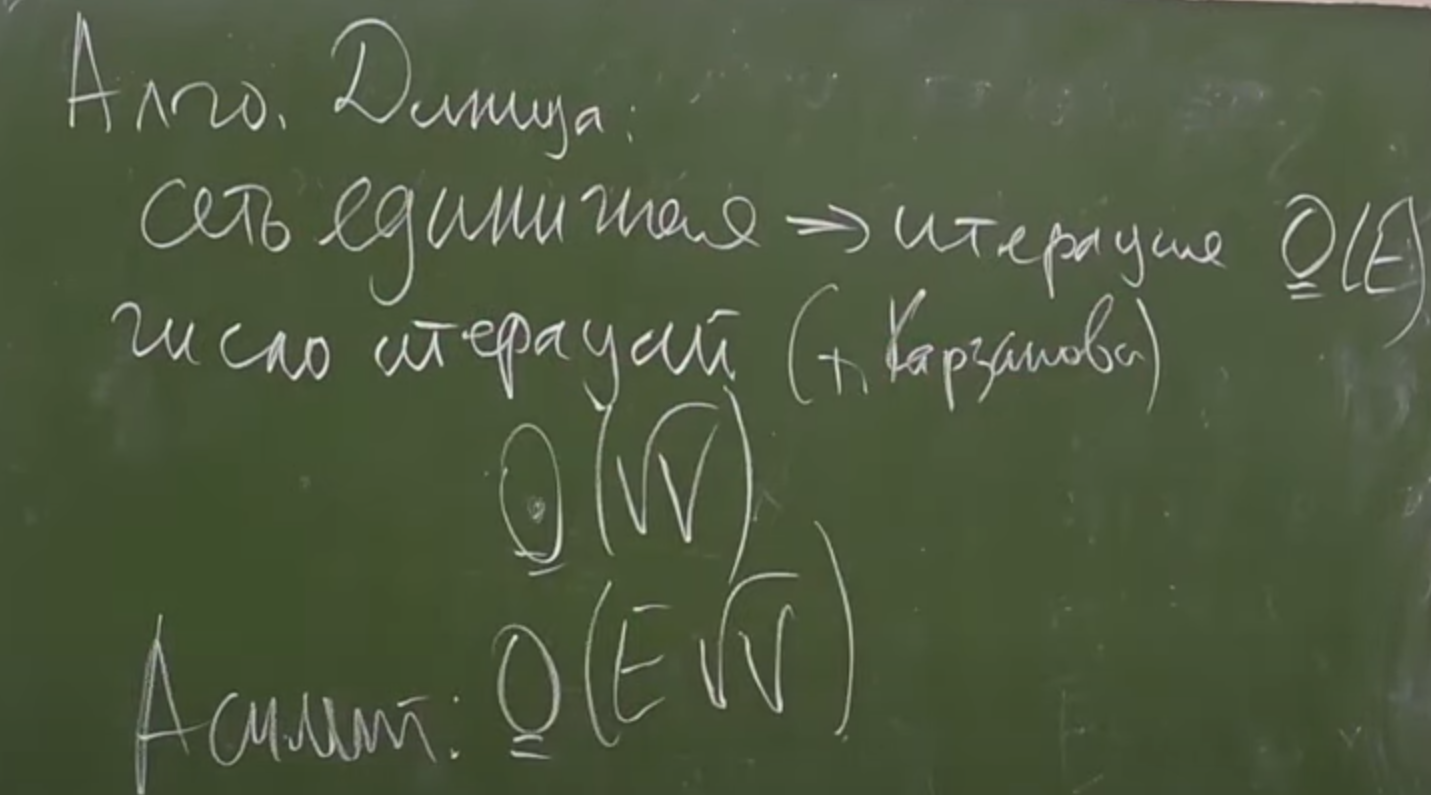 Алго. Диница:
сеть единичная => итерация O(E)
число итераций (т. Карзанова)
O(√V)
Асимпт: O(E√V)